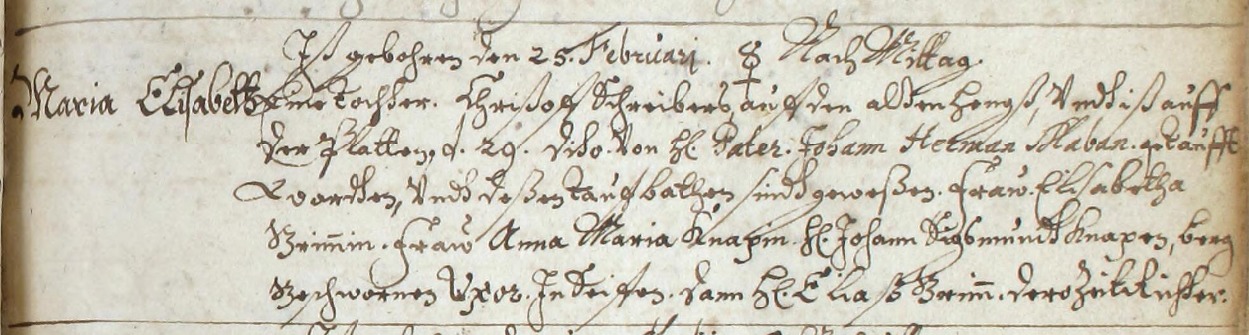 Ist gebohren den 25. Februari. 8 Nach Mittag.
Maria Elisabeth Eine tochter. Christof Schreibers, auf den alden hengst, Undt ist auff
der Platten, d. 29. dito. Von H. Pater. Johann Herman getaufft
wordten, Undt deßen taufbathen sindt geweßen. Fraw. Elisabetha
Frau Anna Maria Knapin. H. Johann Sigsmundt Knapen, berg
Geschwornen Uxor. In Seifen. dann H. Eliaß derozeit Richter.